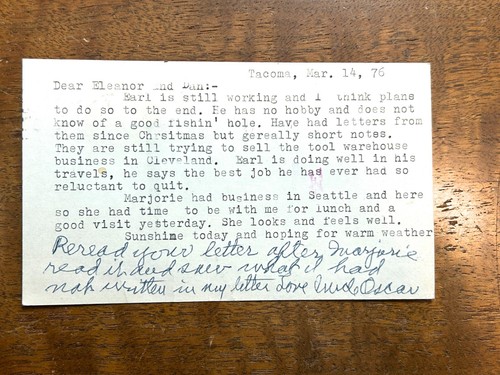 Tacoma, Mar. 14, 76
Dear Eleanor and Dan:-
Earl is still working and I think plans
to do so to the end. He has no hobby and does not
know of a good fishin' hole. Have had letters from
them since Chrsitmas but gereally short notes.
They are still trying to sell the tool warehouse
business in Cleveland. Earl is doing well in his
travels, he says the best job he has ever had so
reluctant to quit.
Marjorie had business in Seattle and here
so she had time to be with me for lunch and a
good visit yesterday. She looks and feels well.
Sunshine today and hoping for warm weather
Reread your letter after Marjorie
read it and saw what I had
not written in my letter Love Uncle Oscar